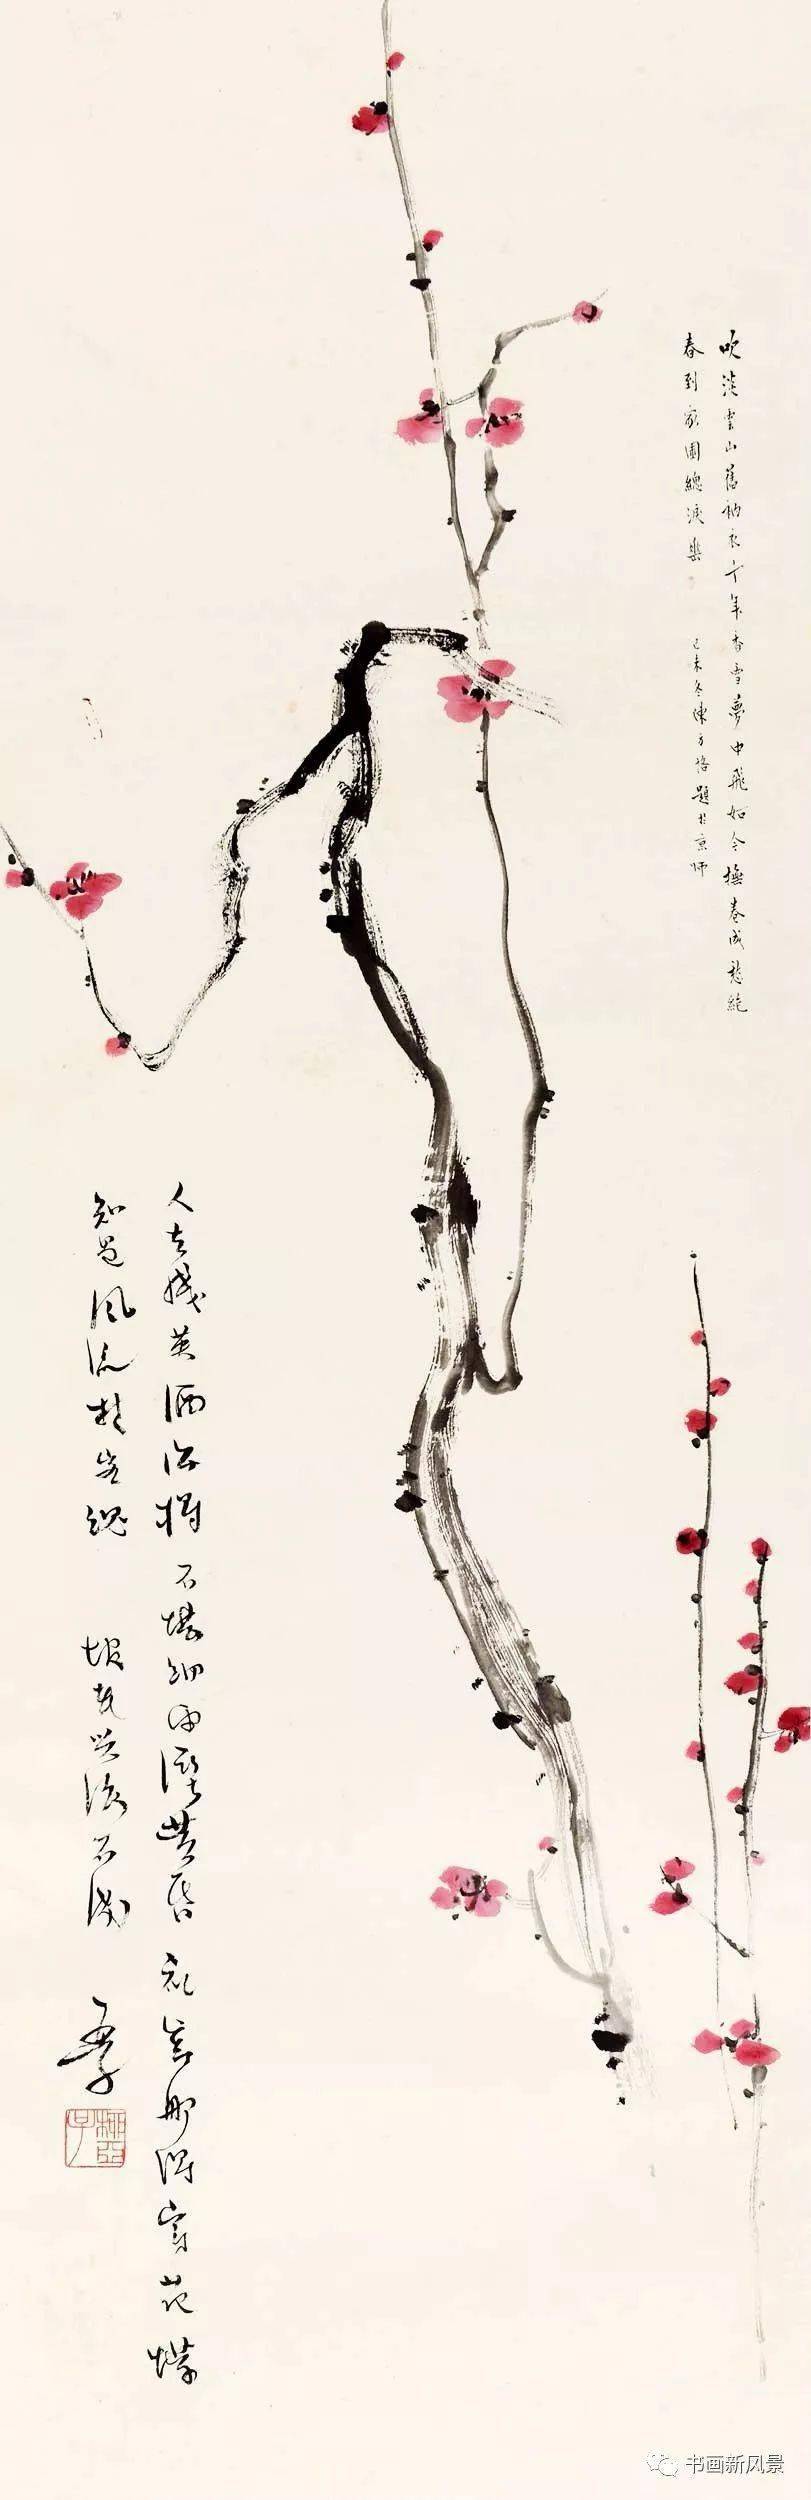 吹淡雲山舊衲衣十年香雪夢中飛如今撫卷成愁絕
春到家園總淚
己未冬陳方恪題於京師
人去殘英酒滿樽不堪細雨濕黃昏夜寒那得穿花蝶
知是風流楚客魂
书画新风景